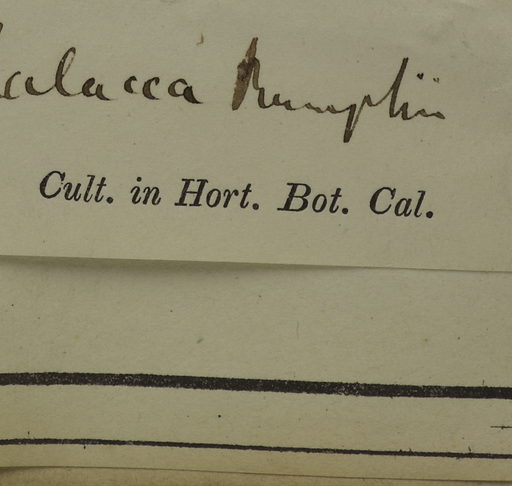 alacca Rumphii
Cult. in Hort. Bot. Cal.